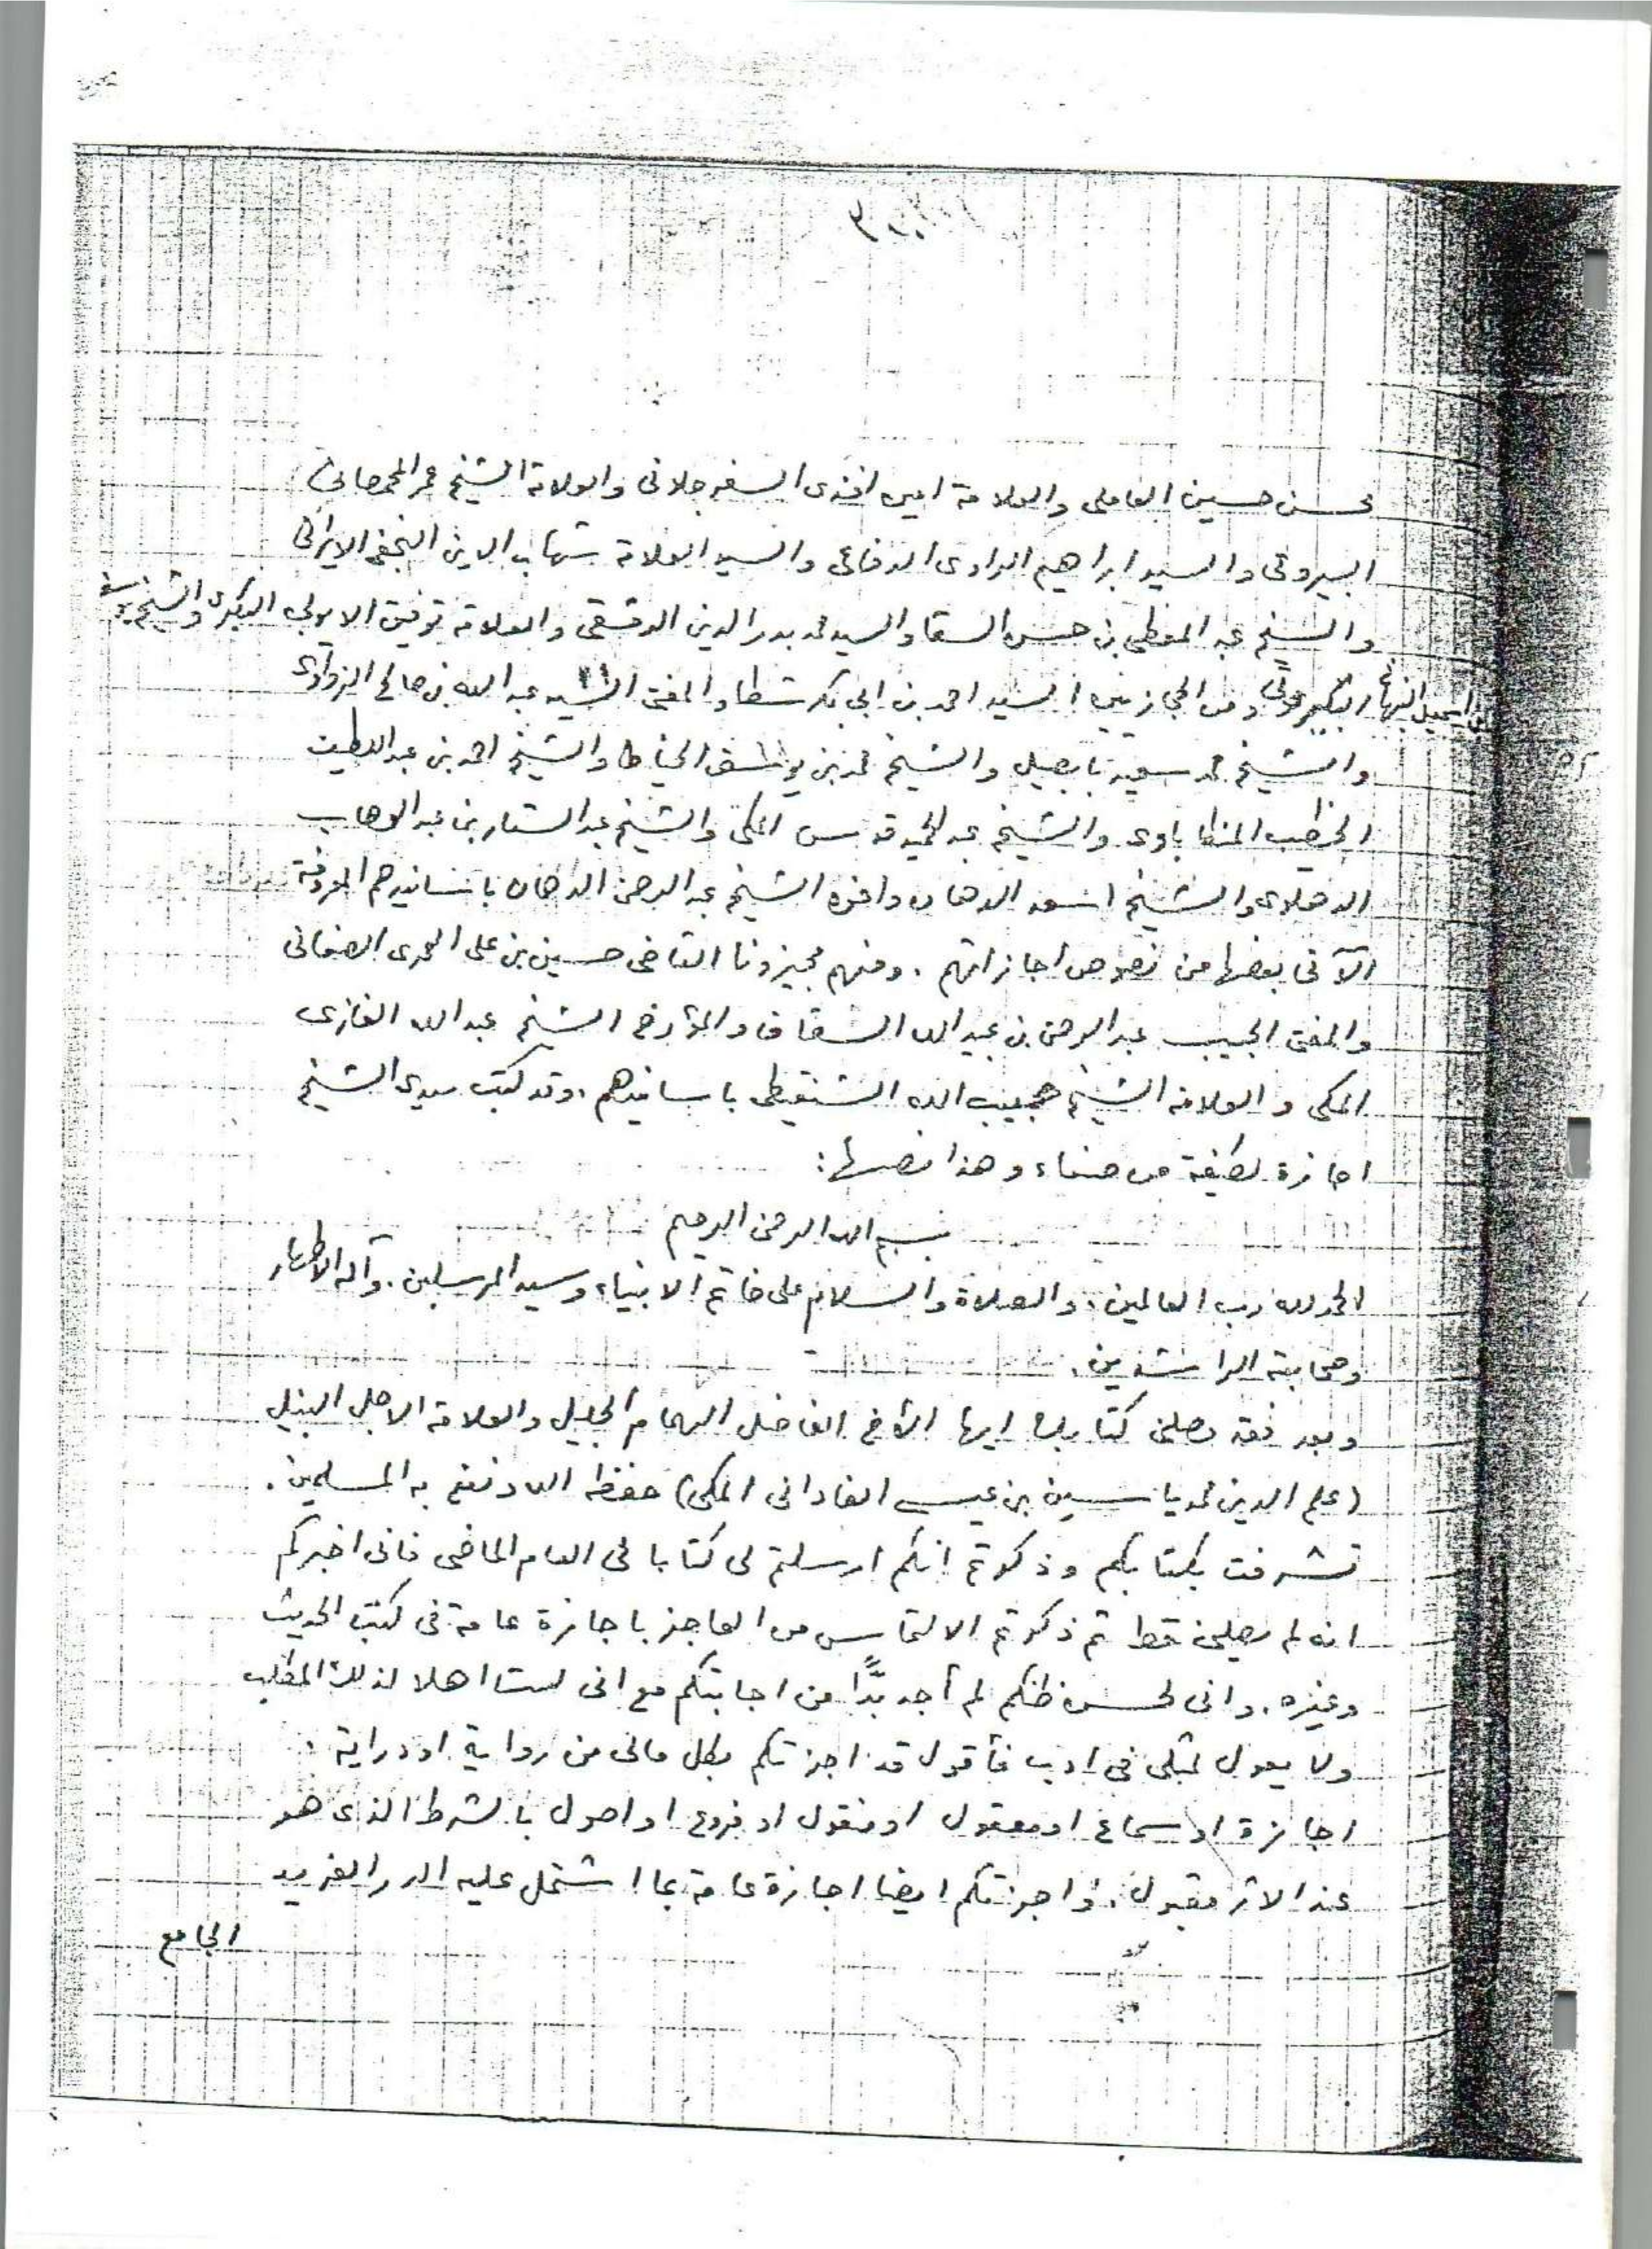 محسن حسين العاملى والعلامة امين افندى السفرجلانى والعلامة الشيخ عمر المحمصانى
البيروتى والسيد ابراهيم الراوى الرفاعى والسيد العلامة شهاب الدين النجفى الايرانى
والشيخ عبد المعطى بن حسن السقا والسيد محمد بدر الدين الدمشقى والعلامة توفيق الايوبى البكرى والشيخ يوسف
بن اسمعيل النبهانى البيروتى ومن الحجازيين السيد احمد بن ابى بكر شطا والمفتى السيد عبد الله بن صالح الزواوى
والشيخ محمد سعيد بابصيل والشيخ محمد بن يوسف الخياط والشيخ احمد بن عبد اللطيف
الخطيب المنكاباوى والشيخ عبد الحميد قدس المكى والشيخ عبد الستار بن عبد الوهاب
الدهلوى والشيخ اسعد الدهان واخوه الشيخ عبد الرحمن الدهان باسانيدهم المعروفة
الآتى بعضها من نصوص اجازاتهم . ومنهم مجيزونا القاضى حسين بن على العمرى الصنعانى
والمفتى الحبيب عبد الرحمن بن عبيد الله السقاف والمؤرخ الشيخ عبد الله الغازى
المكى والعلامة الشيخ حبيب الله الشنقيطى باسانيدهم، وقد كتب سيدى الشيخ
اجازة لطيفة من صنعاء وهذا نصها:
بسم الله الرحمن الرحيم
الحمد لله رب العالمين، والصلاة والسلام على خاتم الانبياء وسيد المرسلين. وآله الاطهار
وصحابته الراشدين.
وبعد فقد وصلنى كتابك ايها الأخ الفاضل الهمام الجليل والعلامة الاجل النبيل
(علم الدين محمد ياسين بن عيسى الفادانى المكى) حفظه الله ونفع به المسلمين.
تشرفت بكتابكم وذكرتم انكم ارسلتم لى كتابا فى العام الماضى فانى اخبركم
انه لم يصلنى قط ثم ذكرتم الالتماس من العاجز باجازة عامة فى كتب الحديث
وغيره. وانى لحسن ظنكم لم أجد بدًّا من اجابتكم مع انى لست اهلا لذلك المطلب
ولا يعول لمثلى فى ادب فأقول قد اجزتكم بكل مالى من رواية او دراية .
اجازة او سماع او معقول او منقول او فروع او اصول بالشرط الذى هو
عند الاثر مقبول. واجزتكم ايضا اجازة عامة بما اشتمل عليه الدر الفريد
الجامع